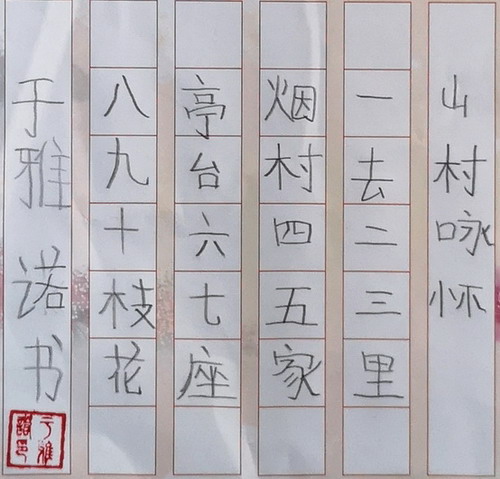 山村咏怀
一去二三里
烟村四五家
亭台六七座
八九十枝花
于雅诺书
于雅
諾印